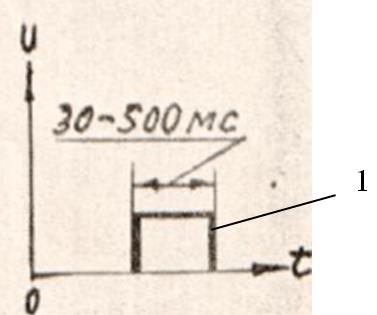 U
30-500 мс
1
t
0